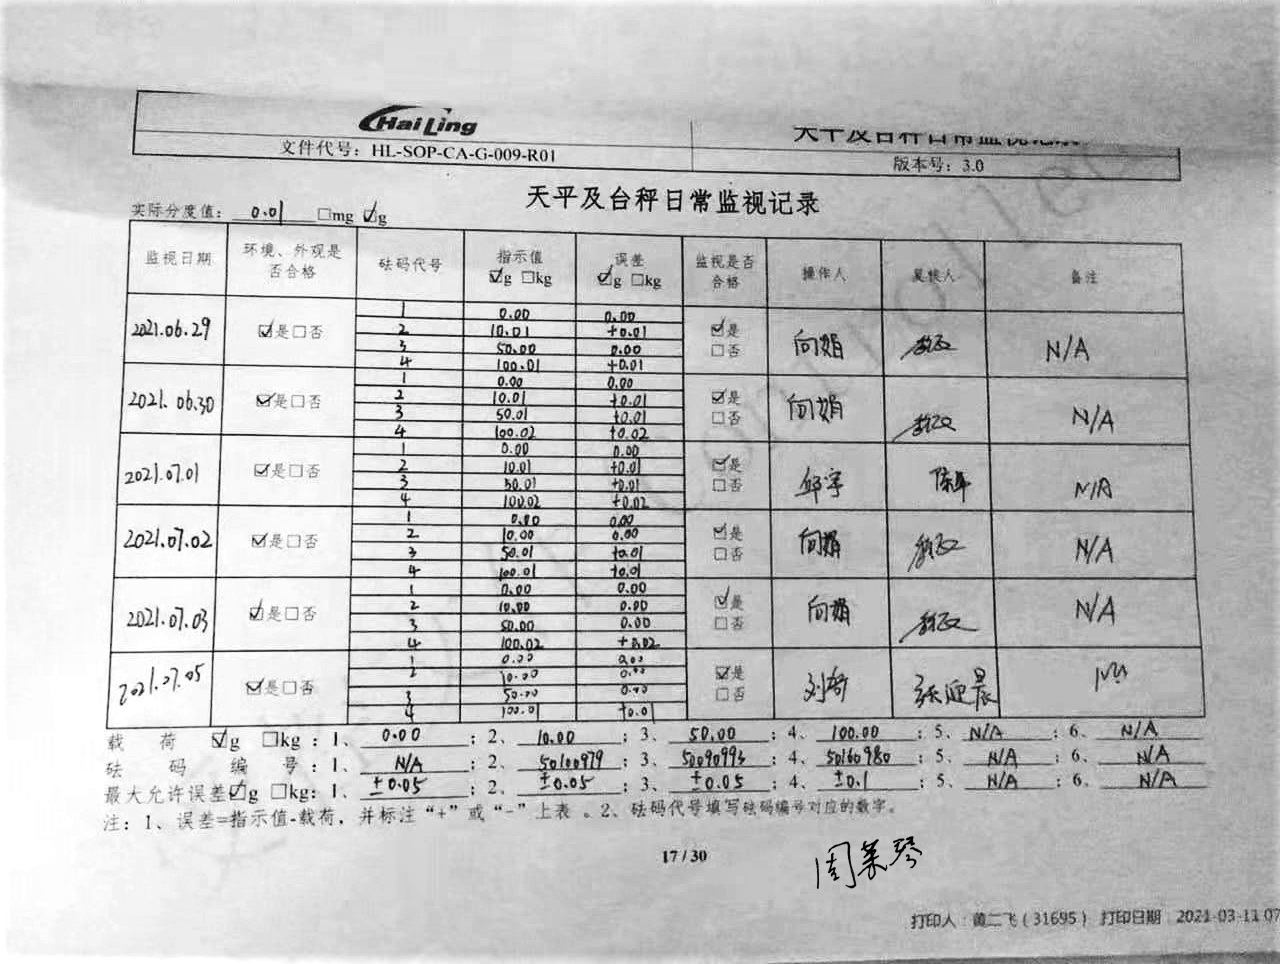 HaiLing
天平及台秤日常监视记录
文件代号：HL-SOP-CA-G-009-R01 版本号：3.0
天平及台秤日常监视记录
实际分度值： 0.01 □mg ☑g
监视日期 环境、外观是否合格 砝码代号 指示值 ☑g □kg 误差 ☑g □kg 监视是否合格 操作人 复核人 备注
2021.06.29 ☑是□否 ☑是 □否 向娟 N/A
1 0.00 0.00
2 10.01 +0.01
3 50.00 0.00
4 100.01 +0.01
2021.06.30 ☑是□否 ☑是 □否 向娟 N/A
1 0.00 0.00
2 10.01 +0.01
3 50.01 +0.01
4 100.02 +0.02
2021.07.01 ☑是□否 ☑是 □否 N/A
1 0.00 0.00
2 10.01 +0.01
3 50.01 +0.01
4 100.02 +0.02
2021.07.02 ☑是□否 ☑是 □否 向娟 N/A
1 0.00 0.00
2 10.00 0.00
3 50.01 +0.01
4 100.01 +0.01
2021.07.03 ☑是□否 ☑是 □否 向娟 N/A
1 0.00 0.00
2 10.00 0.00
3 50.00 0.00
4 100.02 +0.02
2021.07.05 ☑是□否 ☑是 □否 张迎晨
1 0.00 0.00
2 10.00 0.00
3 50.00 0.00
4 100.01 +0.01
载荷 ☑g □kg：1、 0.00 ；2、 10.00 ；3、 50.00 ；4、 100.00 ；5、 N/A ；6、 N/A
砝码编号：1、 N/A ；2、 50100979 ；3、 50090993 ；4、 50160980 ；5、 N/A ；6、 N/A
最大允许误差☑g □kg：1、 ±0.05 ；2、 ±0.05 ；3、 ±0.05 ；4、 ±0.1 ；5、 N/A ；6、 N/A
注：1、误差=指示值-载荷，并标注“+”或“-”上表 。2、砝码代号填写砝码编号对应的数字。
17 / 30
打印人：黄二飞（31695） 打印日期：2021-03-11 07